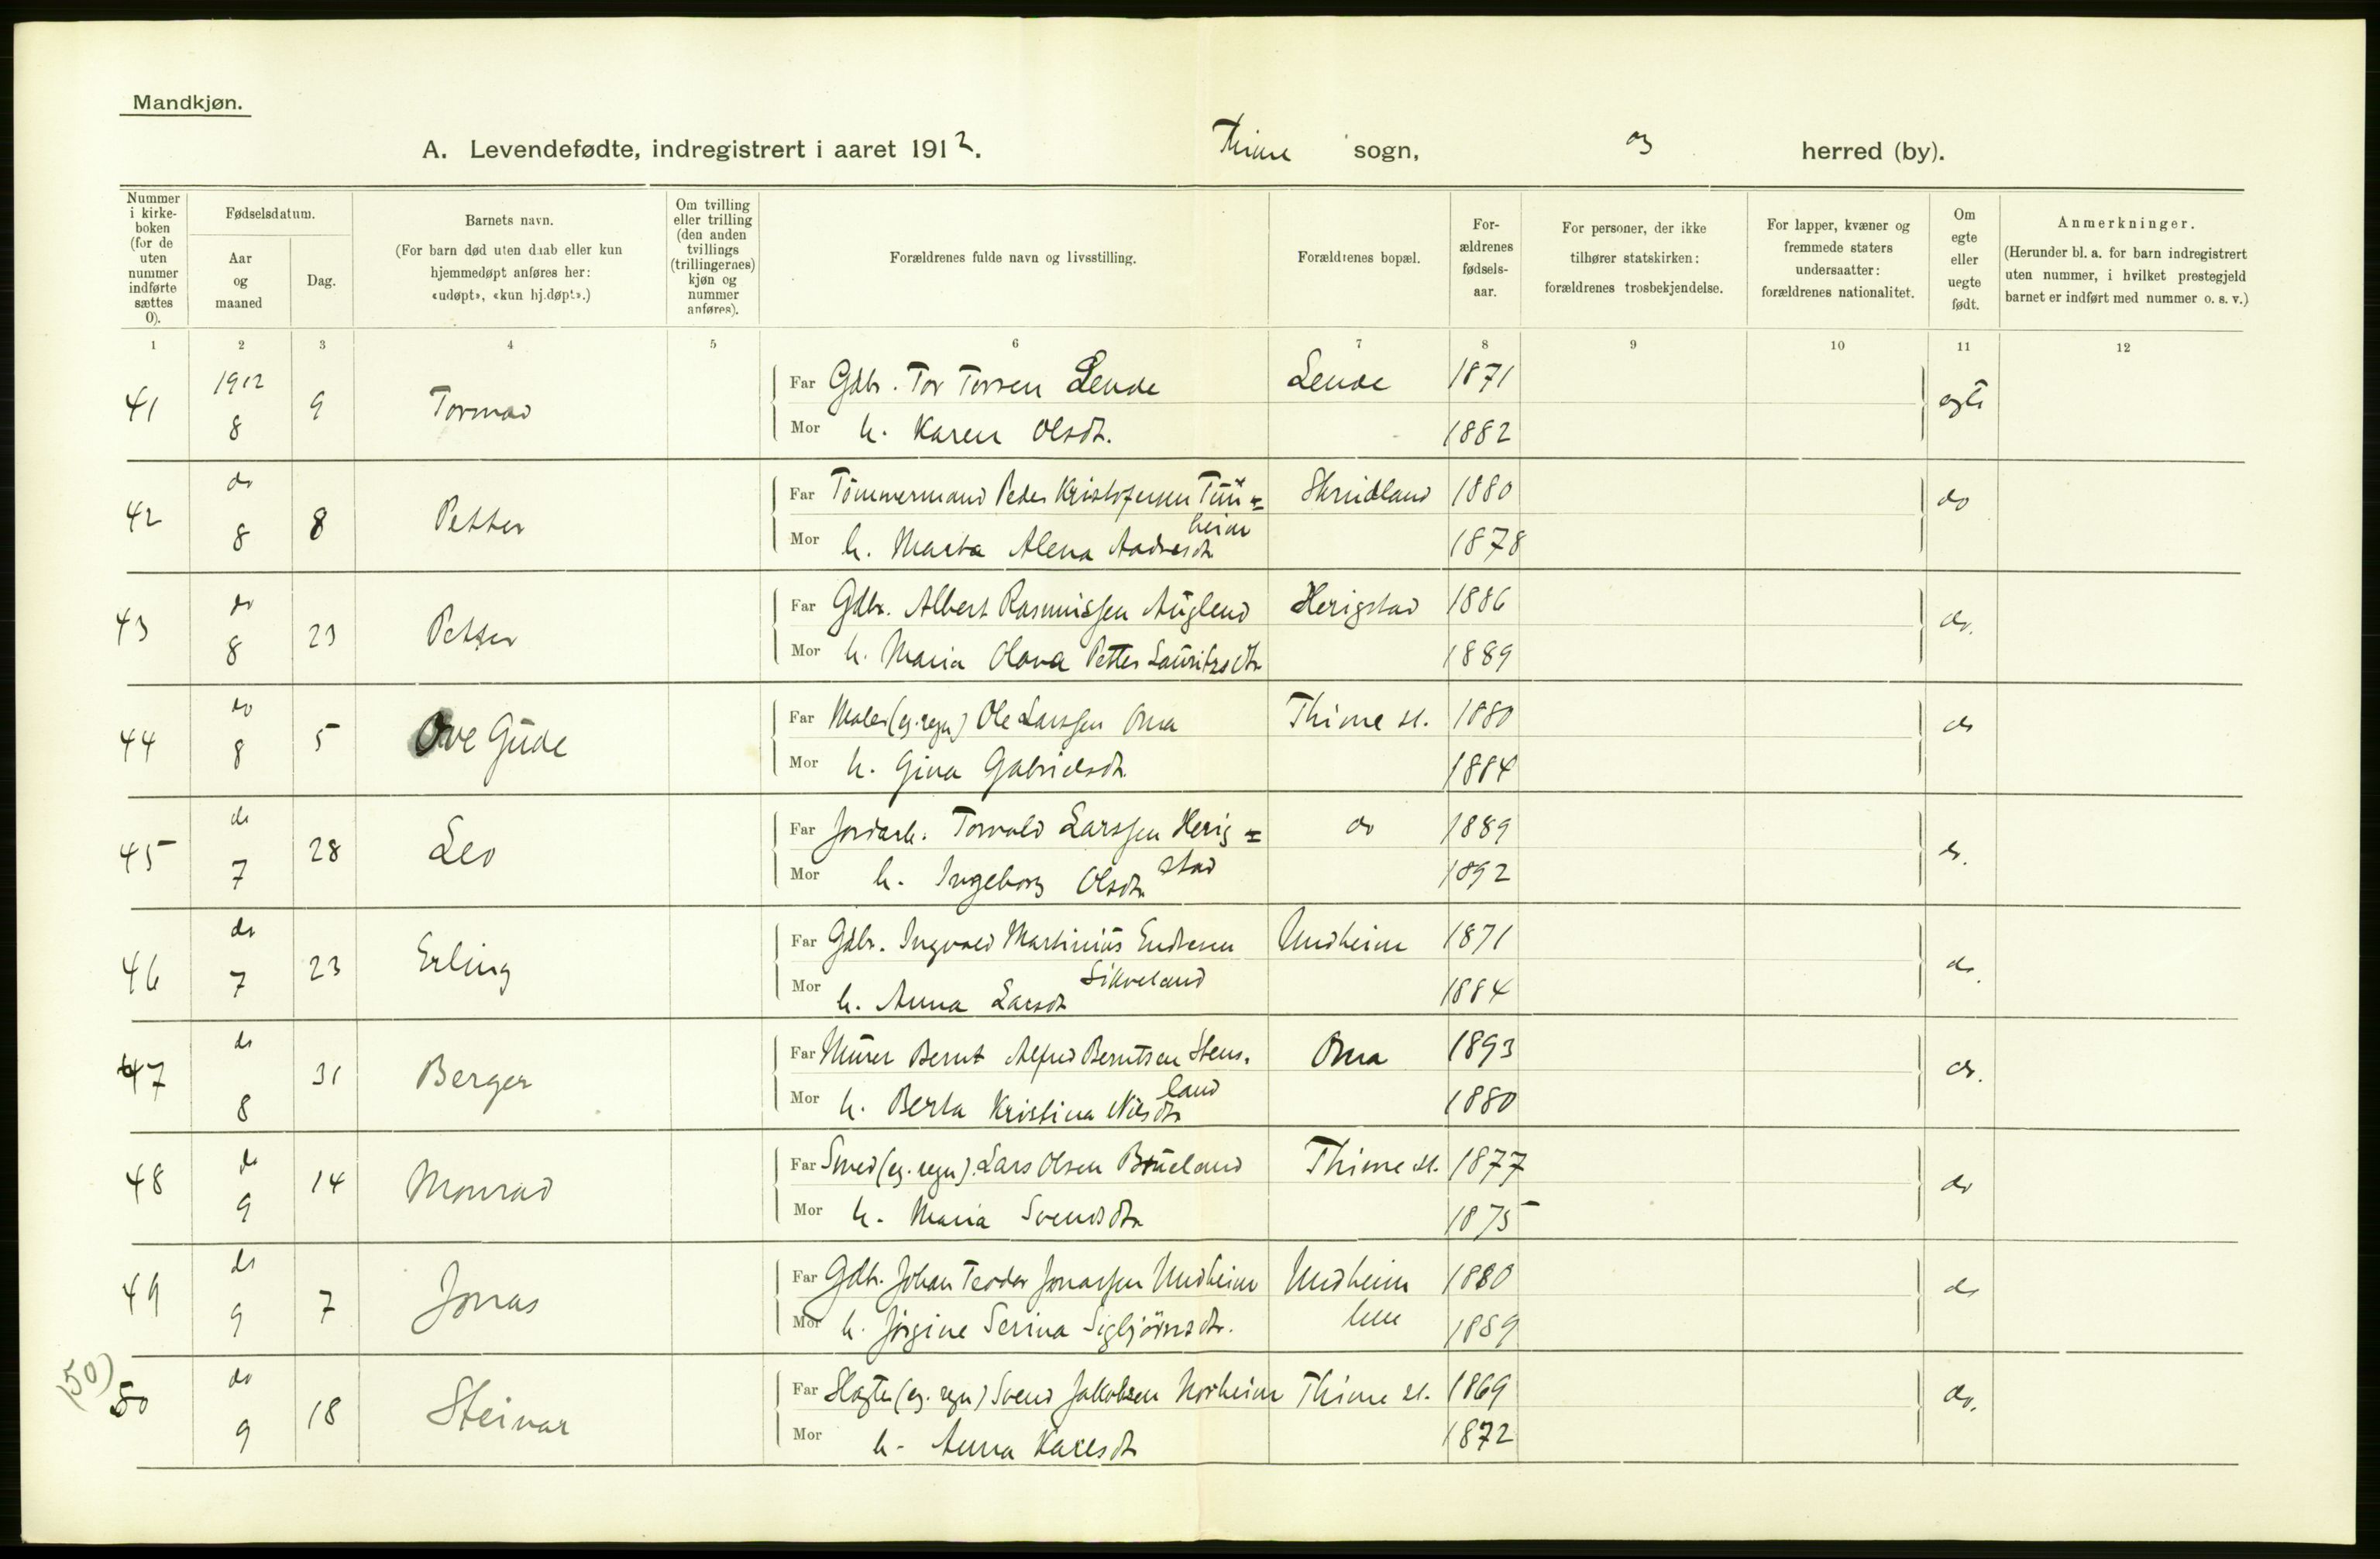 Mandkjøn.
A. Levendefødte, indregistrert i aaret 1912. Thime sogn, og herred (by).
Nummer i kirke- boken (for de uten nummer indførte sættes 0).
Fødselsdatum.
Aar og maaned
Dag.
Barnets navn.
(For barn død uten daab eller kun hjemmedøpt anføres her: «udøpt», «kun hj.døpt».)
Om tvilling eller trilling (den anden tvillings (trillingernes) kjøn og nummer anføres).
Forældrenes fulde navn og livsstilling.
Forældrenes bopæl.
For- ældrenes fødsels- aar.
For personer, der ikke tilhører statskirken: forældrenes trosbekjendelse.
For lapper, kvæner og fremmede staters undersaatter: forældrenes nationalitet.
Om egte eller uegte født.
Anmerkninger.
(Herunder bl. a. for barn indregistrert uten nummer, i hvilket prestegjeld barnet er indført med nummer o. s. v.)
1 2 3 4 5 6 7 8 9 10 11 12
41 1912 8 9 Tormod Far Gdbr. Tor Torsen Lende Lende 1871 egte
Mor h. Karen Olsdt. 1882
42 do 8 8 Petter Far Tömmermand Peder Kristofersen Tun= Skrudland 1880 do
heim
Mor h. Marta Alena Aadnesdt 1878
43 do 8 23 Petter Far Gdbr. Albert Rasmussen Auglend Herigstad 1886 do.
Mor h. Maria Olava Petter Lauritzsdtr 1889
44 do 8 5 Ove Gude Far Maler (eg. regn) Ole Larssen Oma Thime st. 1880 do
Mor h. Gina Gabrielsdt. 1884
45 do 7 28 Leo Far Jordarb. Torvald Larssen Herig= do 1889 do.
stad
Mor h. Ingeborg Olsdtr 1892
46 do 7 23 Erling Far Gdbr. Ingvald Martinius Endresen Undheim 1871 do.
Sikveland
Mor h. Anna Larsdt 1884
47 do 8 31 Berger Far Murer Bernt Alfred Berntsen Stens. Oma 1893 do.
land
Mor h. Berta Kristina Nilsdtr 1880
48 do 9 14 Monrad Far Smed (eg. regn). Lars Olsen Brueland Thime st. 1877 do
Mor h. Maria Svendsdtr 1875
49 do 9 7 Jonas Far Gdbr. Johan Teodor Jonassen Undheim Undheim 1880 do
lille
Mor h. Jörgine Serina Sigbjörnsdtr. 1889
(50)
50 do 9 18 Steinar Far Slagter (eg. regn) Svend Jakobsen Norheim Thime st. 1869 do.
Mor h. Anna Karlsdt 1872